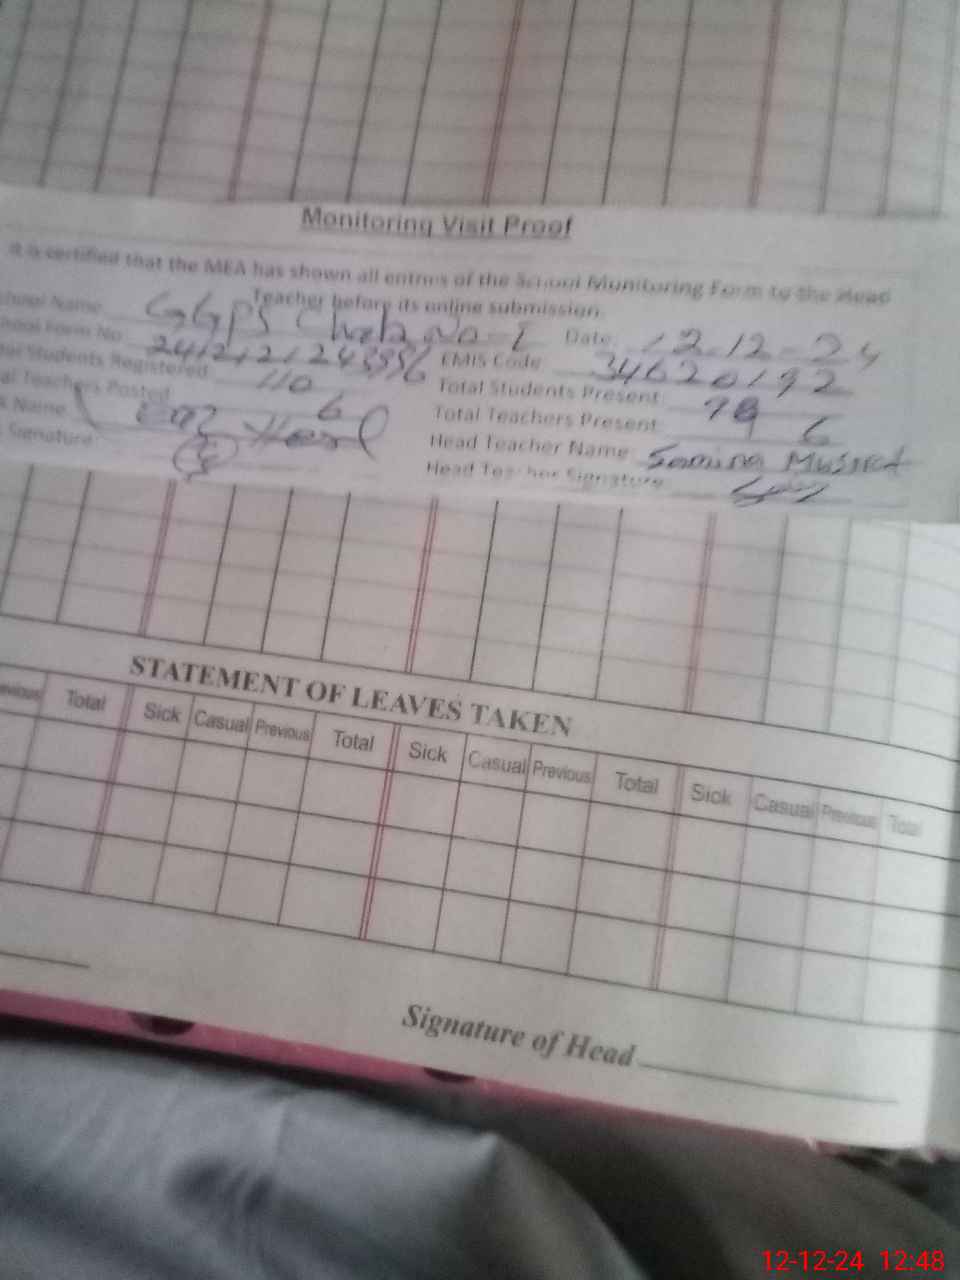 Monitoring Visit Proof
It is certified that the MEA has shown all entries of the School Monitoring Form to the Head
Teacher before its online submission.
School Name GGPS No-I Date 12-12-24
School Form No EMIS Code 34620192
Total Students Registered 110 Total Students Present 78
Total Teachers Posted 6 Total Teachers Present 6
Name Head Teacher Name Samina
Signature Head Teacher Signature
STATEMENT OF LEAVES TAKEN
Previous Total Sick Casual Previous Total Sick Casual Previous Total Sick Casual Previous Total
Signature of Head
12-12-24 12:48